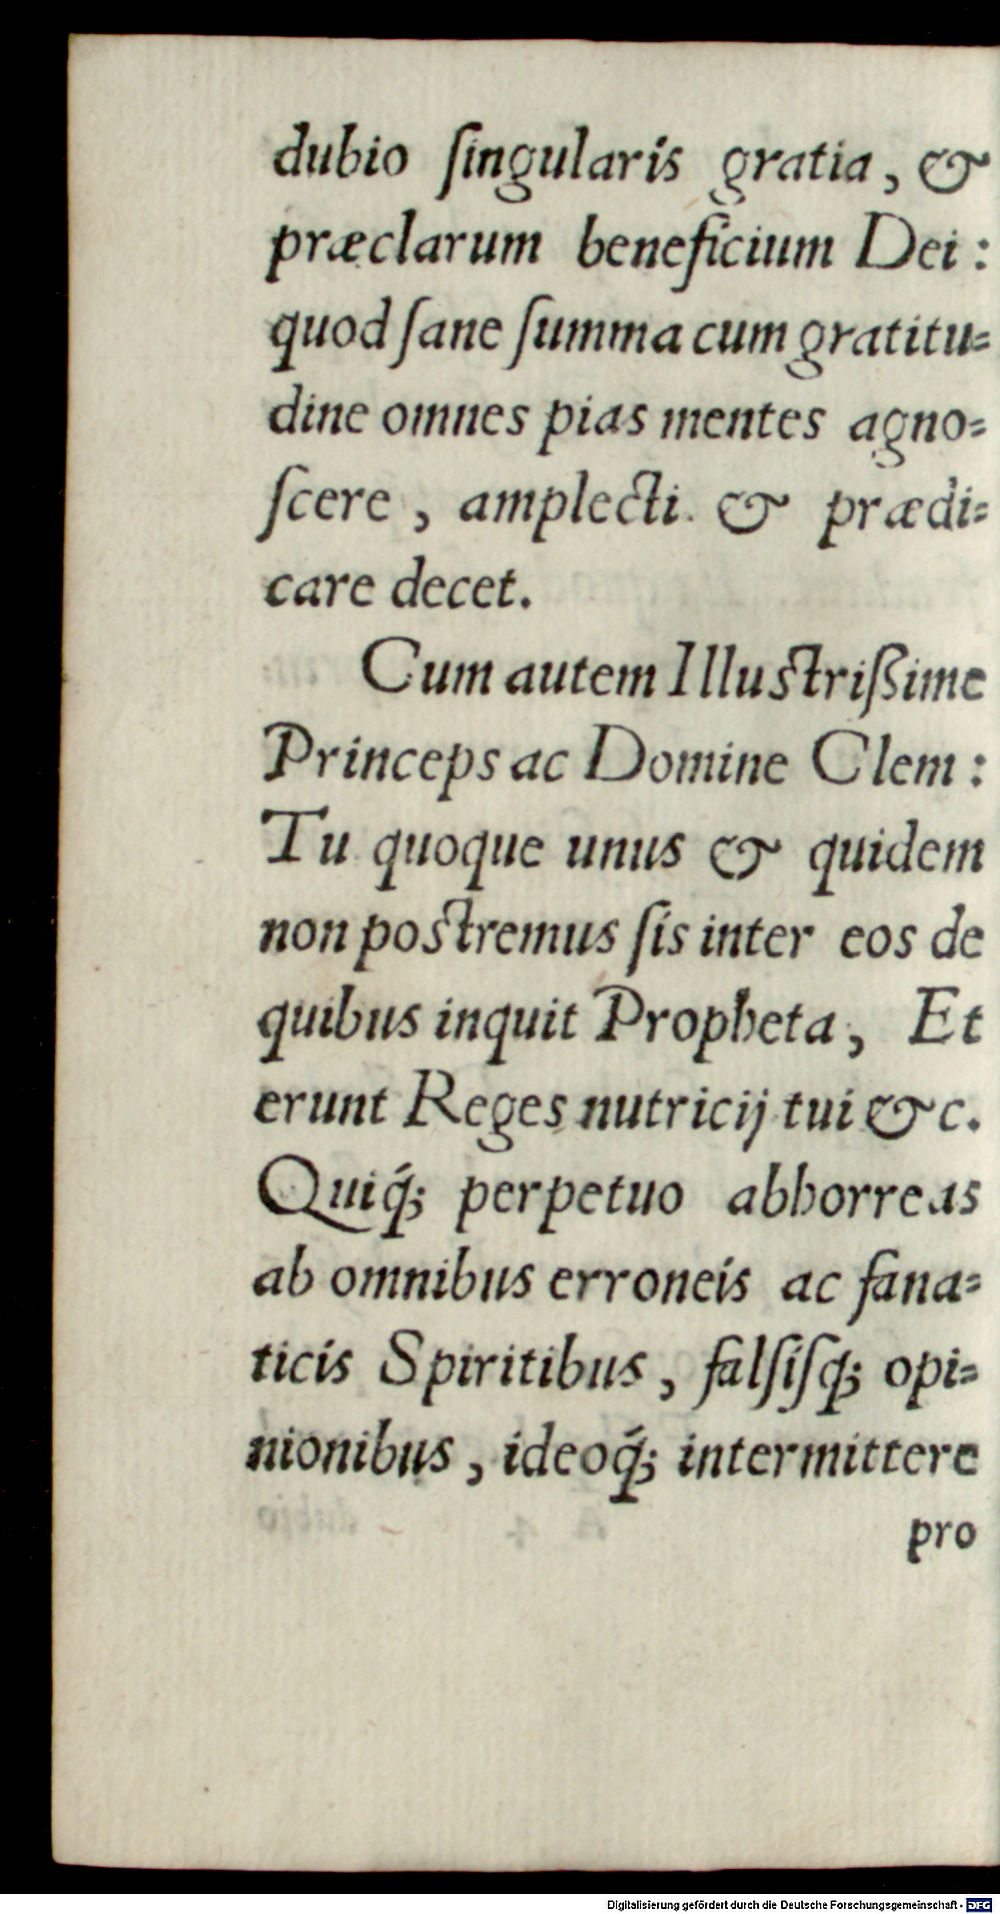 dubio ſingularis gratia, &
præclarum beneficium Dei:
quod ſane ſumma cum gratitu⸗
dine omnes pias mentes agno⸗
ſcere, amplecti & prædi⸗
care decet.
Cum autem Illuſtrißime
Princeps ac Domine Clem:
Tu quoque unus & quidem
non poſtremus ſis inter eos de
quibus inquit Propheta, Et
erunt Reges nutricij tui &c.
Quiq́; perpetuo abhorreas
ab omnibus erroneis ac fana⸗
ticis Spiritibus, falſiſq; opi⸗
nionibus, ideoq́; intermittere
pro
Digitalisierung gefördert durch die Deutsche Forschungsgemeinschaft - DFG